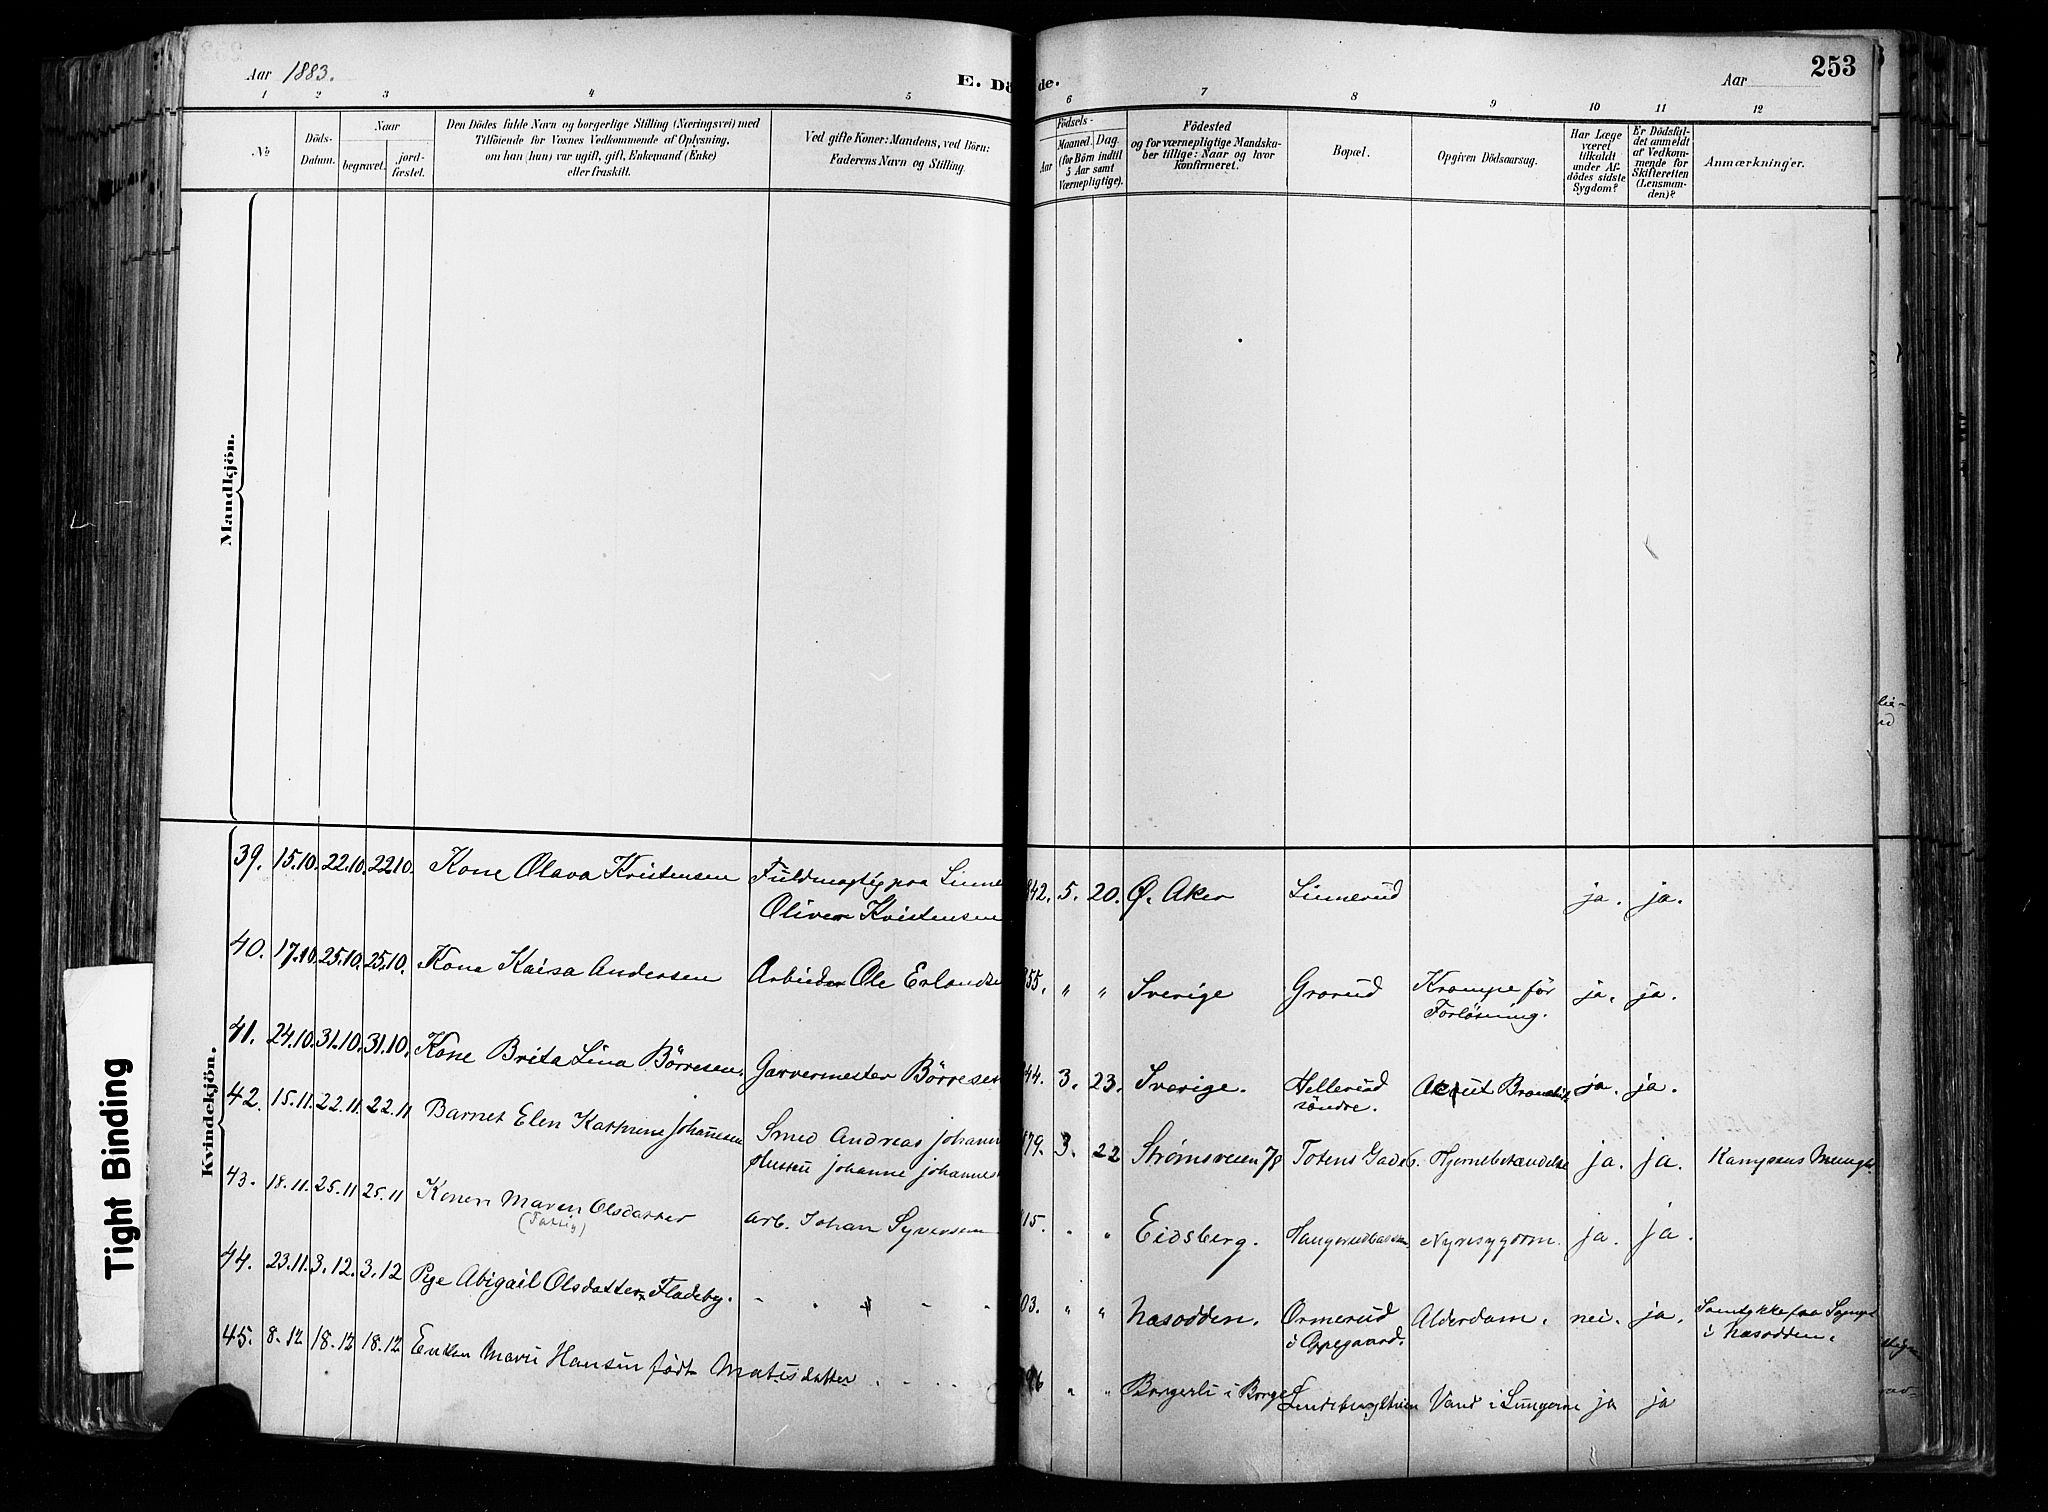 Aar 1883.
E. Dö
de.
Aar
253
1 2 3 4 5 6 7 8 9 10 11 12
№
Döds-
Datum.
Naar
begravet.
jord-
fæstet.
Den Dödes fulde Navn og borgerlige Stilling (Næringsvei) med
Tilföiende for Voxnes Vedkommende af Oplysning,
om han (hun) var ugift, gift, Enkemand (Enke)
eller fraskilt.
Ved gifte Koner: Mandens, ved Börn:
Faderens Navn og Stilling.
Födsels-
Aar
Maaned. Dag.
(for Börn indtil
5 Aar samt
Værnepligtige).
Födested
og for værnepligtige Mandska-
ber tillige: Naar og hvor
konfirmeret.
Bopæl.
Opgiven Dödsaarsag.
Har Læge
været
tilkaldt
under Af-
dödes sidste
Sygdom?
Er Dödsfal-
det anmeldt
af Vedkom-
mende for
Skifteretten
(Lensman-
den)?
Anmærkninger.
Mandkjön.
Kvindekjön.
39. 15.10. 22.10. 22.10. Kone Olava Kristensen Fuldmægtig paa Linne
Oliver Kristensen
842. 5. 20. Ø. Aker Linnerud ja. ja.
40. 17.10. 25.10. 25.10. Kone Kaisa Andersen Arbeider Ole Erlandse
855. " " Sverige Grorud Krampe før
Forløsning. ja. ja.
41. 24.10. 31.10. 31.10. Kone Brita Lina Börresen. Garvermester Börresen
844. 3. 23. Sverige. Hellerud
söndre. Akut Bronchit. ja. ja.
42. 15.11. 22.11. 22.11 Barnet Elen Kathrine Johannesen Smed Andreas Johannes
Hustru Johanne Johannes
879. 3. 22 Strømsveien 78 Totens Gade 6. Hjernebetændelse ja. ja. Kampens Menigh.
43. 18.11. 25.11 25.11 Konen Maren Olsdatter
(Fattig)
Arb. Johan Syversen
15. " " Eidsberg. Nyresygdom. ja. ja.
44. 23.11. 3.12. 3.12 Pige Abigail Olsdatter Fladeby.
03. " " Næsodden. Ormerud
i Oppegaard. Alderdom. nei. ja.
i Næsodden.
45. 8.12 18.12 18.12 Enken Marie Hansen født Matisdatter
96 " " Borgerli i Borge Vand i Lungerne ja ja
Tight Binding